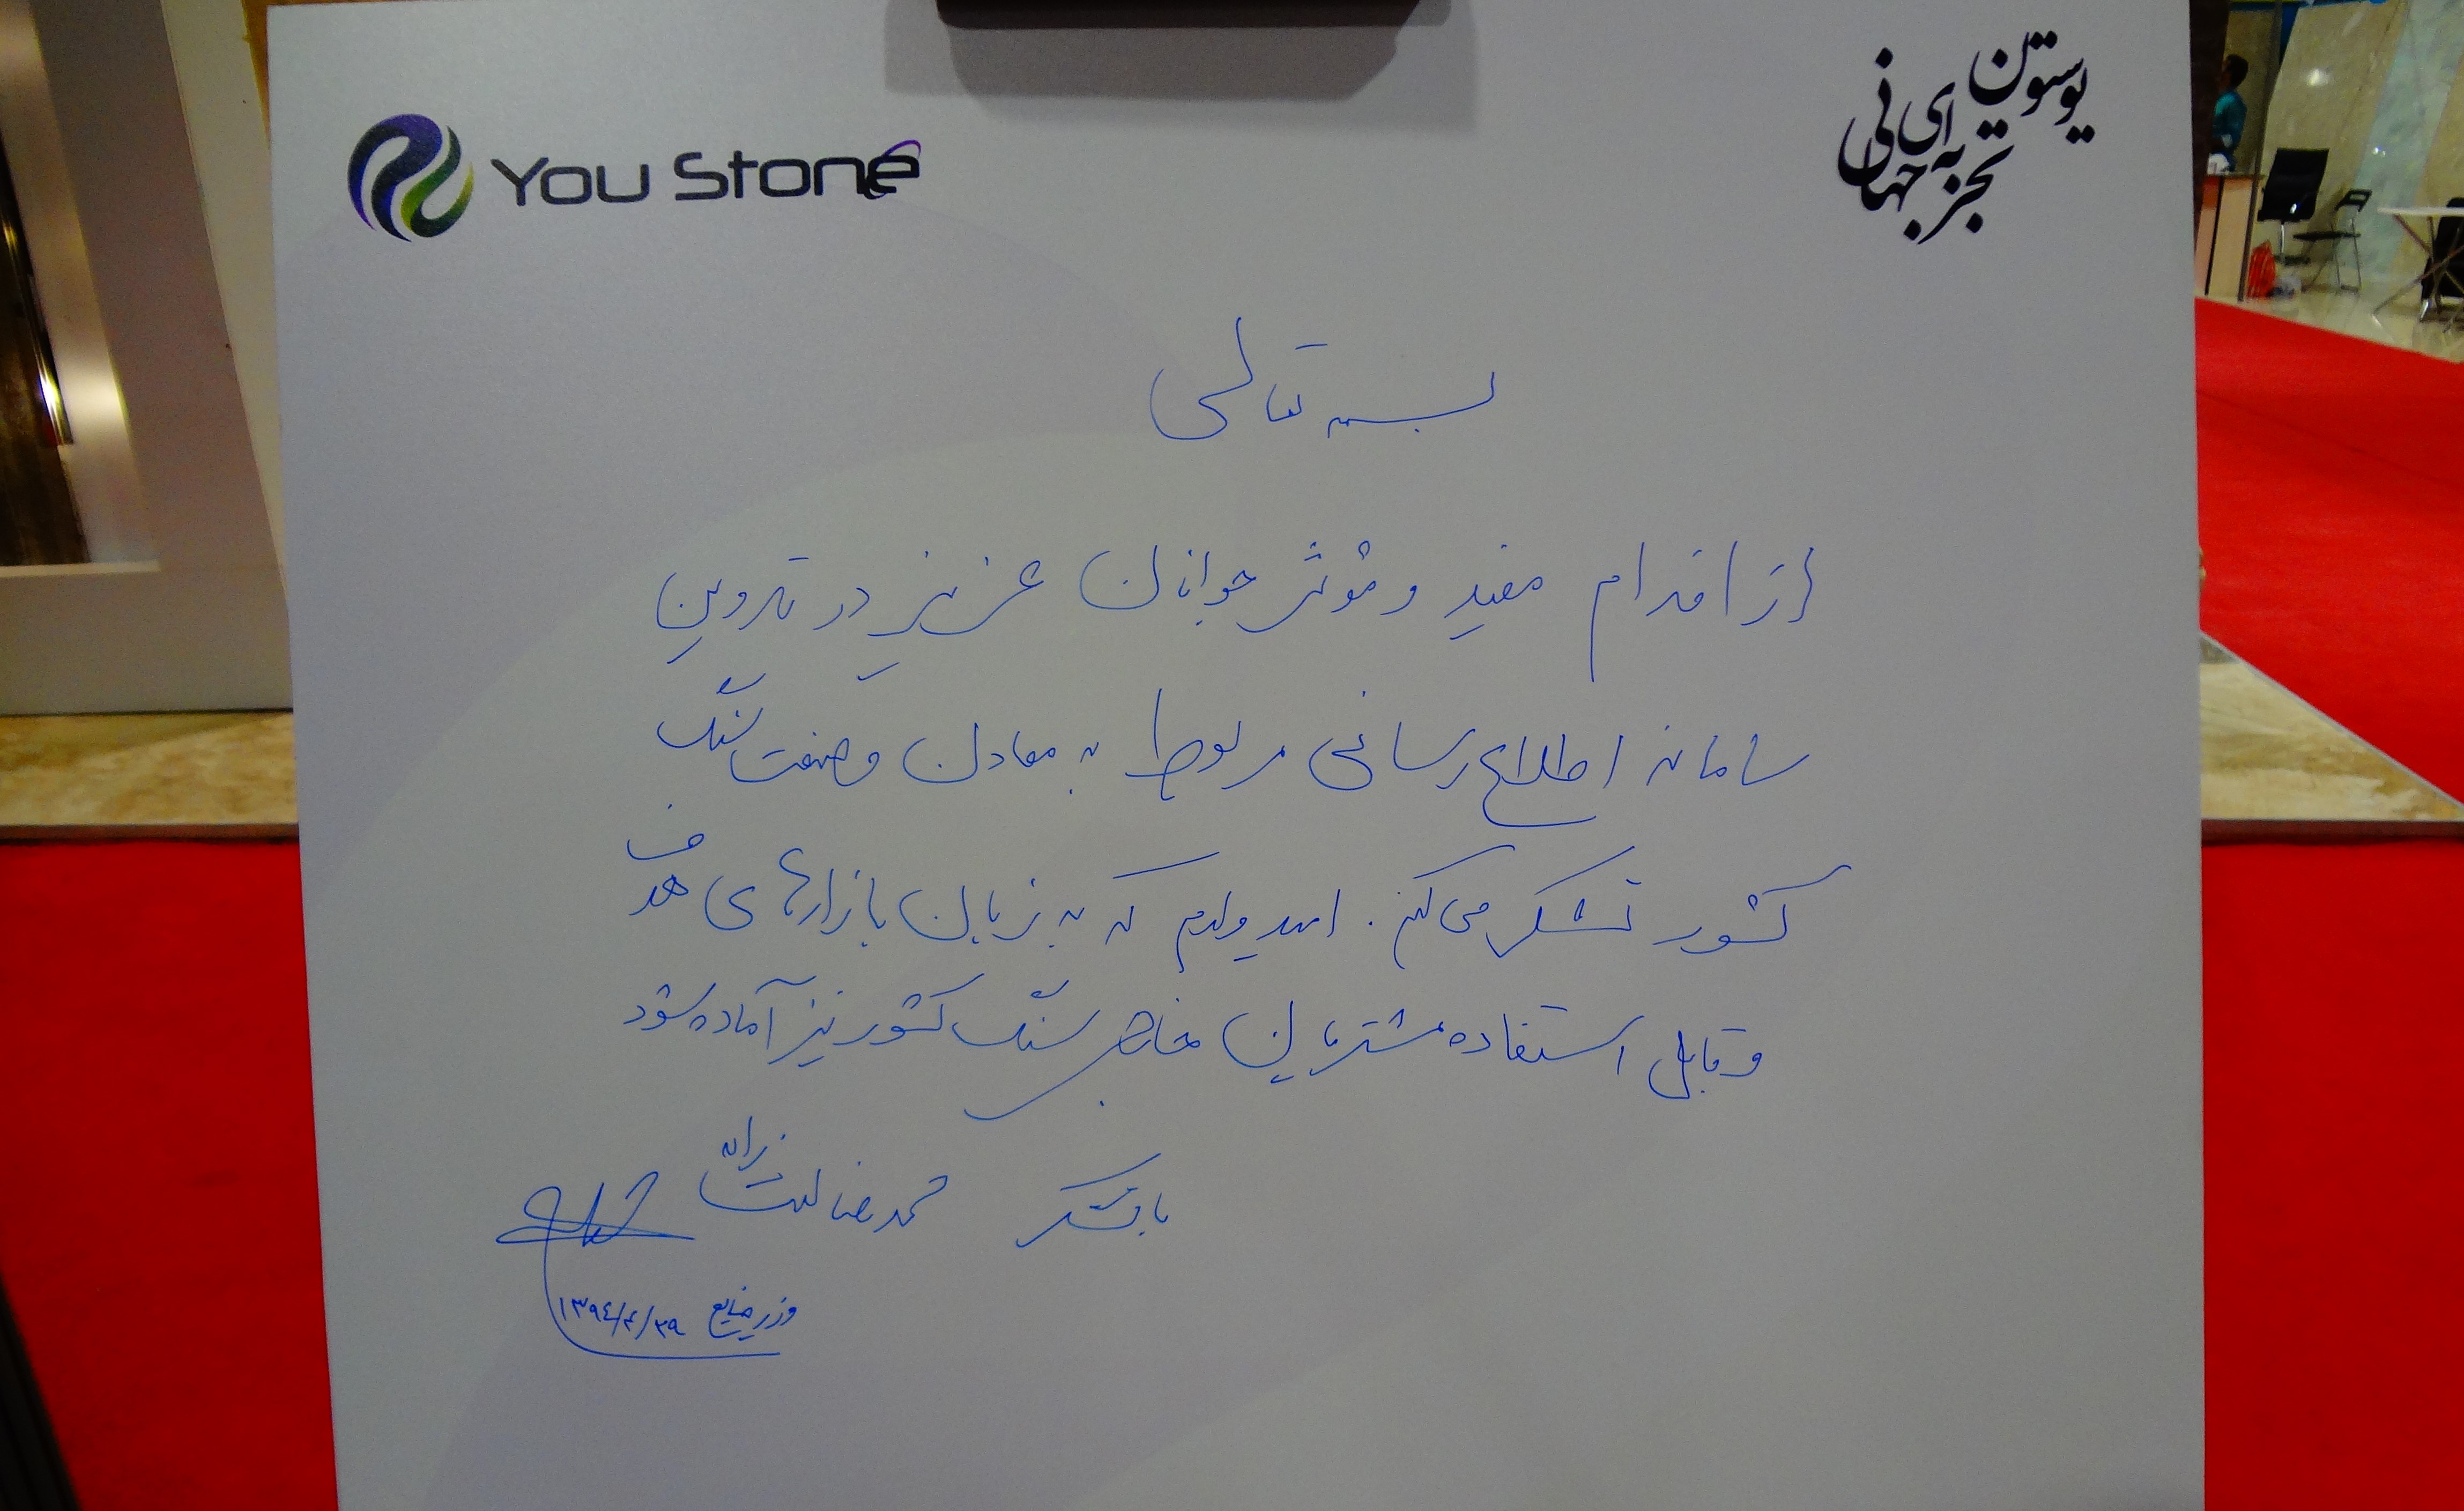 You Stone
یوستون
تجربه ای
جهانی
بسمه تعالی
از اقدام مفید و مؤثر جوانان عزیز در تدوین
سامانه اطلاع رسانی مربوط به معادن و صنعت سنگ
کشور تشکر می کنم. امیدوارم که به زبان بازارهای هدف
و قابل استفاده مشتریان خاص سنگ کشور نیز آماده شود
با تشکر محمدرضا نعمت زاده
وزیر صنایع ۱۳۹٤/٤/۲۹